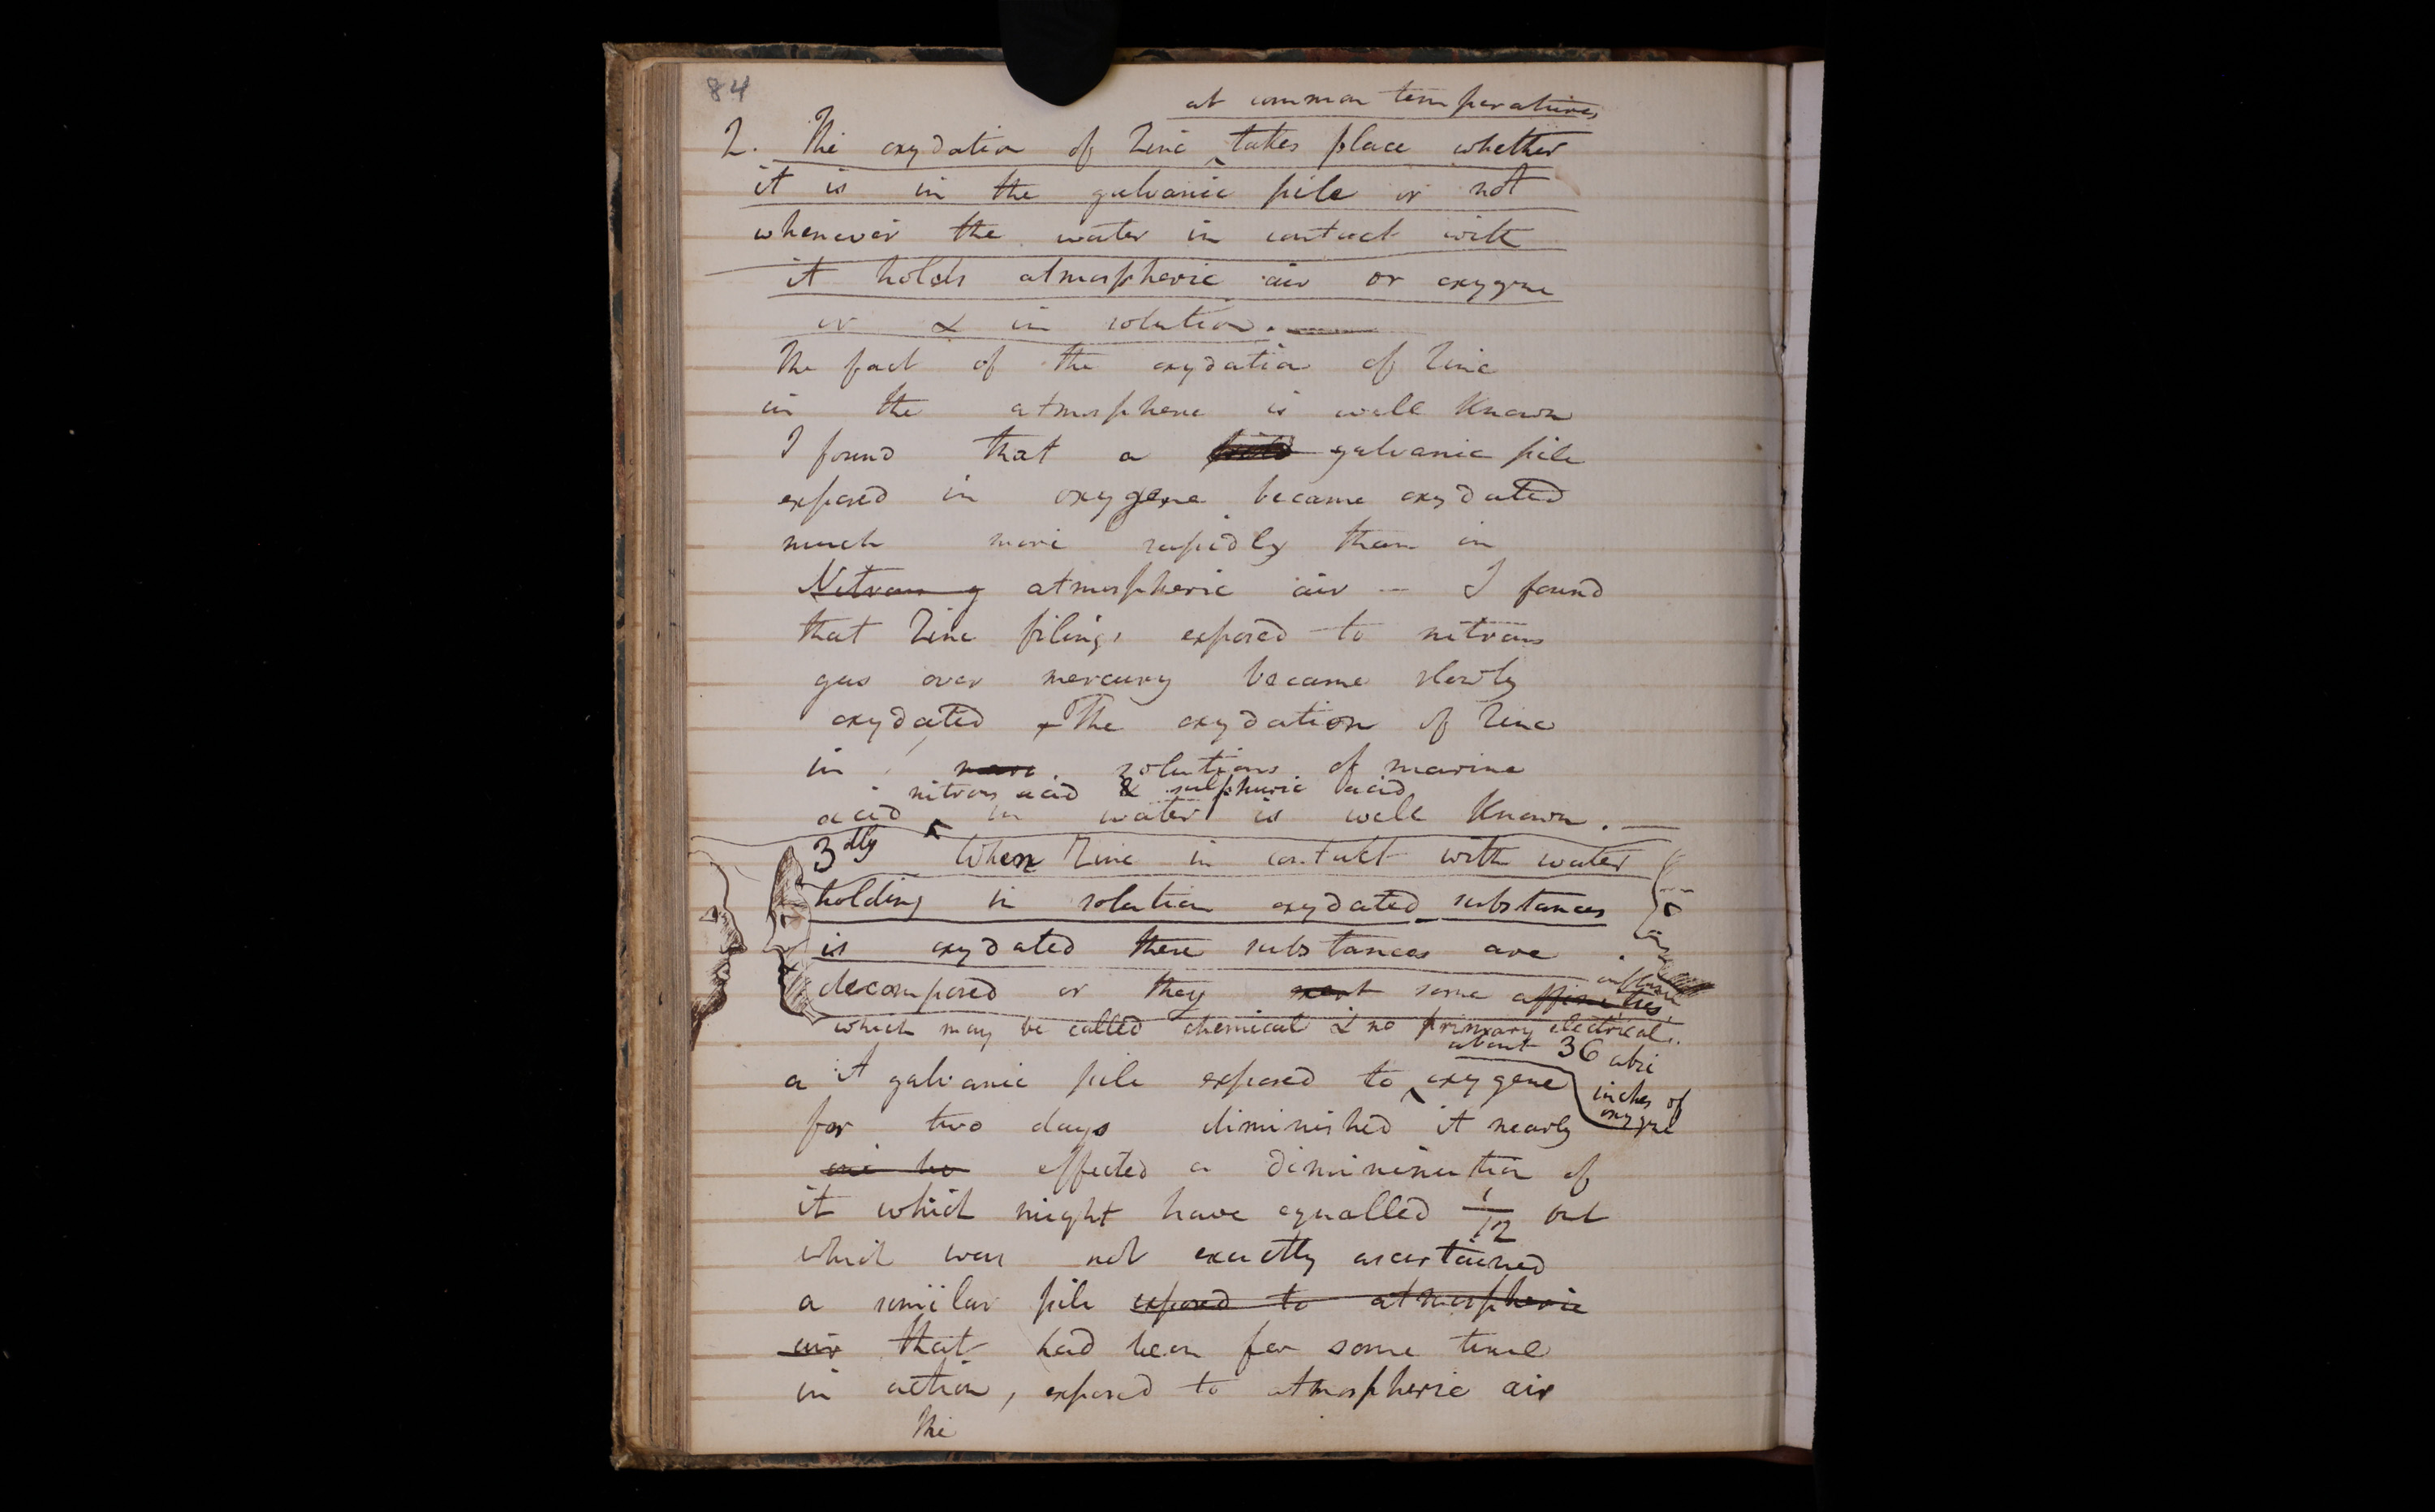 84
at common temperatures
2. The oxydation of Zinc takes place whether
it is in the galvanic pile or not
whenever the water in contact with
it holds atmospheric air or oxygene
or & in solution.
The fact of the oxydation of Zinc
in the atmosphere is well Known
I found that a galvanic pile
exposed in oxygene became oxydated
much more rapidly than in
Nitrous g atmospheric air - I found
that Zinc filings exposed to nitrous
gas over mercury became slowly
oxydated The oxydation of Zinc
in solutions of marine
nitrous acid & sulphuric acid
acid in water is well Known. —
3dly When Zinc in contact with water
holding in solution oxydated substances
is oxydated these substances are
decomposed or they exert some affinities
which may be called chemical & no primary electrical.
about 36 cubic
inches of
oxygene
a A galvanic pile exposed to oxygene
for two days diminished it nearly
effected a diminination of
it which might have equalled 1/12 but
which was not exactly ascertained
a similar pile exposed to atmospheric
air that had been for some time
in action, exposed to atmospheric air
The